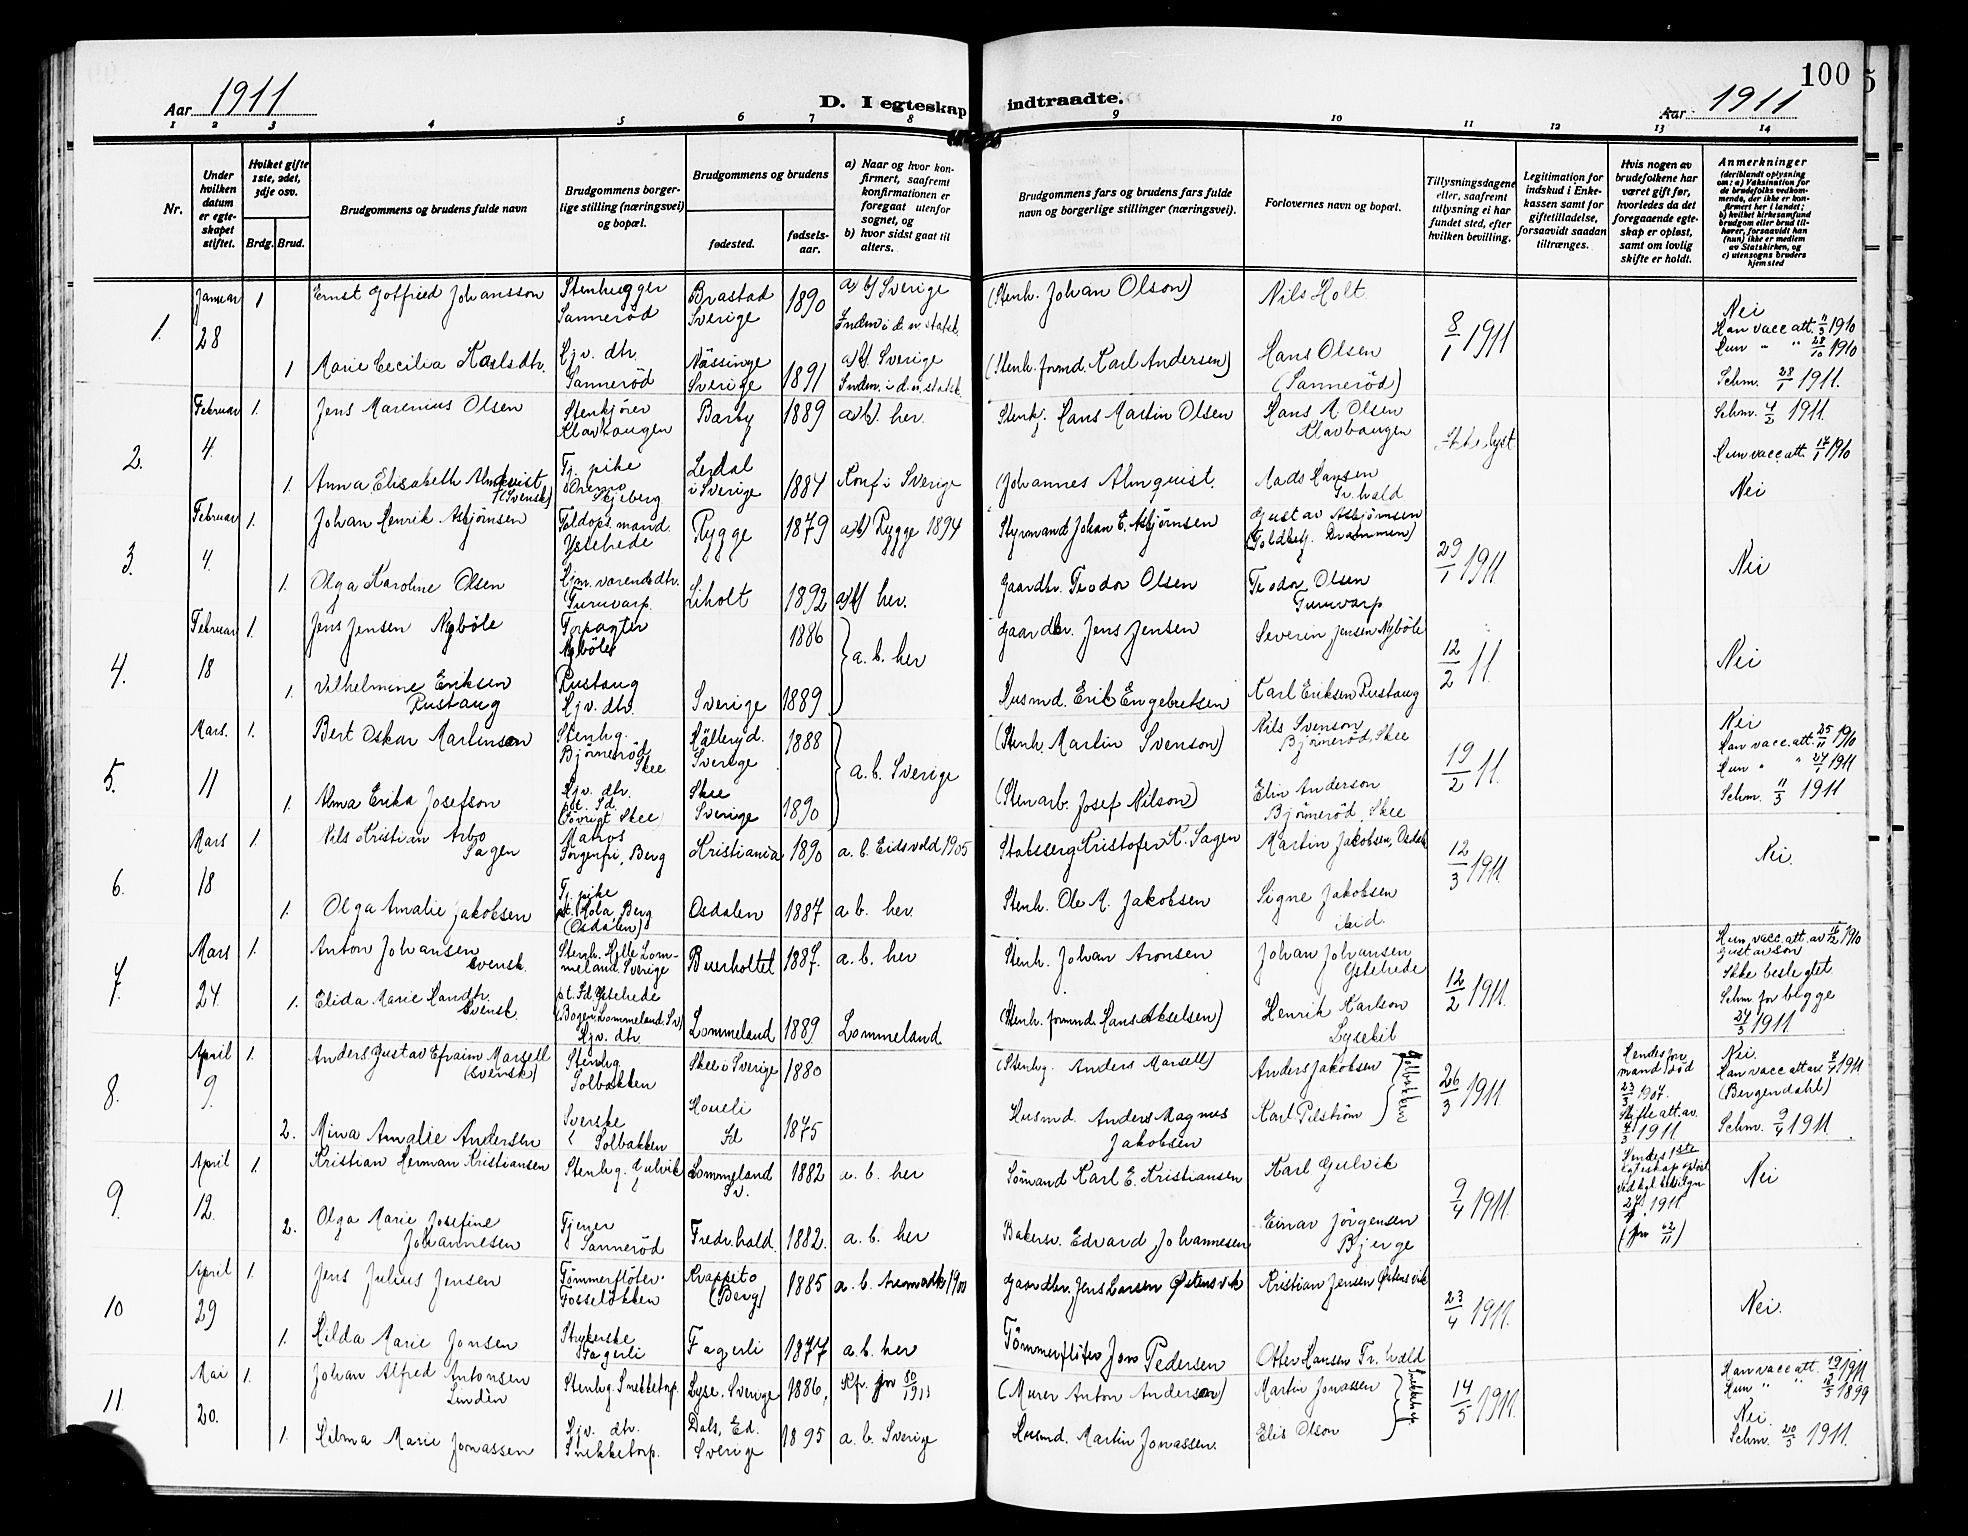 100
Aar 1911
D. I egteskap indtraadte.
Aar 1911
1 2 3 4 5 6 7 8 9 10 11 12 13 14
Nr.
Under hvilken datum er egteskapet stiftet.
Hvilket gifte 1ste, 2det, 3dje osv.
Brdg. Brud.
Brudgommens og brudens fulde navn
Brudgommens borgerlige stilling (næringsvei) og bopæl.
Brudgommens og brudens
fødested.
fødselsaar.
a) Naar og hvor konfirmert, saafremt konfirmationen er foregaat utenfor sognet, og
b) hvor sidst gaat til alters.
Brudgommens fars og brudens fars fulde navn og borgerlige stillinger (næringsvei).
Forlovernes navn og bopæl.
Tillysningsdagene eller, saafremt tillysning ei har fundet sted, efter hvilken bevilling.
Legitimation for indskud i Enkekassen samt for giftetilladelse, forsaavidt saadan tiltrænges.
Hvis nogen av brudefolkene har været gift før, hvorledes da det foregaaende egteskap er opløst, samt om lovlig skifte er holdt.
Anmerkninger (deriblandt oplysning om: a) Vaksination for de brudefolks vedkommende, der ikke er konfirmert her i landet; b) hvilket kirkesamfund brudgom eller brud tilhører, forsaavidt han (hun) ikke er medlem av Statskirken, og c) utensogns bruders hjemsted
1. Januar 28 1 Ernst Gotfried Johansson Stenhugger Sannerød Brastad Sverige 1890 a) b) Sverige Indem. i d. sv. statsk. (Stenh. Johan Olson) Nils Holt 8/1 1911 Nei Han vacc att. 11/3 1910
1 Marie Cecilia Karlsdtr. Hjv. dtr. Sannerød Nässinge Sverige 1891 a) b) Sverige Indem. i d. sv. statsk. (Stenh. formd. Karl Andersen) Hans Olsen (Sannerød) Hun " " 28/10 1910 Schm. 28/1 1911.
2. Februar 4. 1. Jens Marenius Olsen Stenkjører Klavhaugen Barby 1889 a b). her. Stenkj. Hans Martin Olsen Hans M. Olsen Klavhaugen Schm. 4/2 1911.
1. Anna Elisabeth Almkvist (Svensk) Tj. pike Skjeberg Lerdal i Sverige 1884 Konf i Sverige Johannes Almquist. Mads Hansen Fr.hald Hun vacc att. 17/1 1910 Nei
3. Februar 4. 1. Johan Henrik Asbjørnsen Toldops. mand. Ystehede Rygge 1879 a b) Rygge 1894 Styrmand Johan E. Asbjørnsen Gustav Asbjørnsen (Toldbetj. Drammen) 29/1 1911 Nei
1. Olga Karoline Olsen Hjm. værende dtr. Furuvarp. Liholt 1892 a) b) her. Gaardbr. Teodor Olsen Teodor Olsen Furuvarp
4. Februar 18 1. Jens Jensen Nybøle Forpagter Nybøle 1886 a. b. her Gaardbr. Jens Jensen Severin Jensen Nybøle 12/2 11. Nei
1. Vilhelmine Eriksen Rustaug Rustaug Hjv. dtr. Sverige 1889 Husmd. Erik Engebretsen Karl Eriksen Rustaug
5. Mars. 11 1. Bert Oskar Martinson Stenhg. Bjørnerød Skee Hälleryd. Sverige 1888 a. b. Sverige (Stenh. Martin Svenson) Nils Svenson Bjørnerød, Skee 19/2 11. Nei Han vacc. att. 25/11 1910
1. Alma Erika Josefson Hjv. dtr. Skee Sverige 1890 (Stenarb. Josef Nilson) Elin Anderson Bjørnerød, Skee Hun " " 24/1 1911 Schm. 11/3 1911
6. Mars 18 1. Nils Kristian Arbo Sagen Matros Sorgenfri, Berg Kristiania 1890 a. b. Eidsvold 1905 Kristofer K. Sagen Martin Jakobsen, Osdalen 12/3 1911 Nei.
1. Olga Amalie Jakobsen Tj. pike pt. Hola, Berg (Osdalen) Osdalen 1887 a b. her. Stenh. Ole A. Jakobsen Signe Jakobsen ibid.
7. Mars 24 1. Anton Johansen Svensk. Stenh. Helle Lommeland Sverige Buerholtet 1887. a. b. her Stenh. Johan Aronsen Johan Johansen Ystehede 12/2 1911. Hun vacc. att. av 16/2 1910 Gustavson Ikke beslegtet.
1. Elida Marie Hansdtr. Svensk. pt. Id Ystehede (Bogen, Lommeland, Sv.) Hjv. dtr. Lommeland 1889 Lommeland (Stenh. formd. Hans Akselsen) Henrik Karlson Lysekil Schm. for begge 24/3 1911
8. April 9. 1. Anders Gustav Efraim Marsell (svensk) Stenhg. Solbakken Skee i Sverige 1880 (Stenhg. Anders Marsell) Anders Jakobsen Solbakken 26/3 1911 Hendes mand død 23/3 1907. Skifte att. av 4/3 1911 Nei. Han vacc att av 8/4 1911 (Bergendahl)
2. Mina Amalie Andersen Solbakken Id 1875 Husmd. Anders Magnus Jakobsen Karl Pilstrøm Schm. 9/4 1911.
9. April 12. 1. Kristian Herman Kristiansen Stenhg. Gulvik Lommeland Sv. 1882 a. b. her Sømand Karl E. Kristiansen Karl Gulvik 9/4 1911. Hendes 1ste egteskap opløst 1911 Nei
2. Olga Marie Josefine Johannesen Tjener Sannerød Fredr.hald. 1882. a. b. her Bakersv. Edvard Johannesen Einar Jörgensen Bjerge
10 April 29 1. Jens Julius Jensen Tømmerfløter. Fosseløkken Krappeto (Berg) 1885 a. b. Aremark 1900 Gaardbr. Jens Larsen Østensvik Kristian Jensen Østensvik 23/4 1911. Nei.
1. Hilda Marie Jonsen Strykerske Fagerli Fagerli 1877 a. b. her Tømmerfløter Jon Pedersen Otter Hansen Fr. hald
11. Mai 20. 1. Johan Alfred Antonsen Lindèn Stenhg. Snekketorp. Lyse. Sverige 1886, (Murer Anton Anderson) Martin Jonassen 14/5 1911. Han vacc att. 19/3 1911
1. Hilma Marie Jonassen Hjv. dtr. Snekketorp. Dals, Ed. Sverige 1895 a. b. Sverige Husmd. Martin Jonassen. Elis Olson Hun " " 1899 Nei. Schm. 20/5 1911.